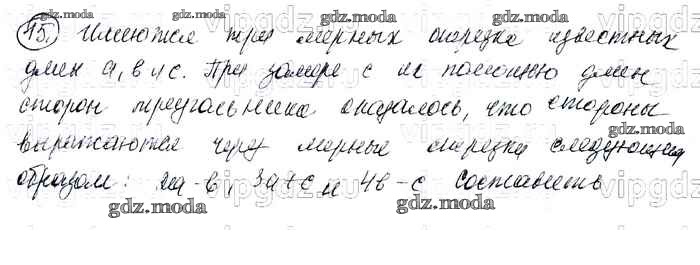 15. Имеются три мерных отрезка известных
длин a, b и c. При замере с их помощью длин
сторон треугольника оказалось, что стороны
выражаются через мерные отрезки следующим
образом: 2a-b, 3a+c и 4b-c составить
gdz.moda
gdz.moda
gdz.moda
gdz.moda
gdz.moda
gdz.moda
gdz.moda
gdz.moda